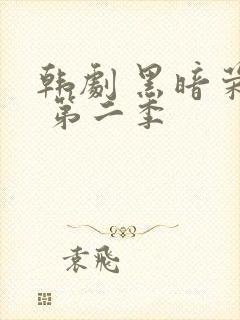 韩劇 黑暗
第二季
袁飛